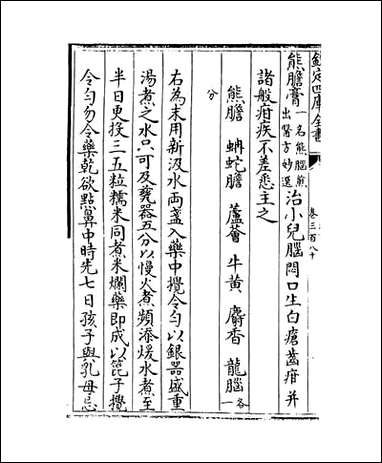 欽定四庫全書
卷三百八十
熊膽膏一名熊腦煎出醫方妙選治小兒腦悶口生白瘡齒疳并
諸般疳疾不差悉主之
熊膽　蚺蛇膽　蘆薈　牛黃　麝香　龍腦各一
分
右為末用新汲水兩盞入藥中攪令勻以銀器盛重
湯煮之水只可及甆器五分以慢火煮頻添煖水煮至
半日更投三五粒糯米同煮米爛藥即成以篦子攪
令勻勿令藥乾欲點鼻中時先七日孩子與乳母忌